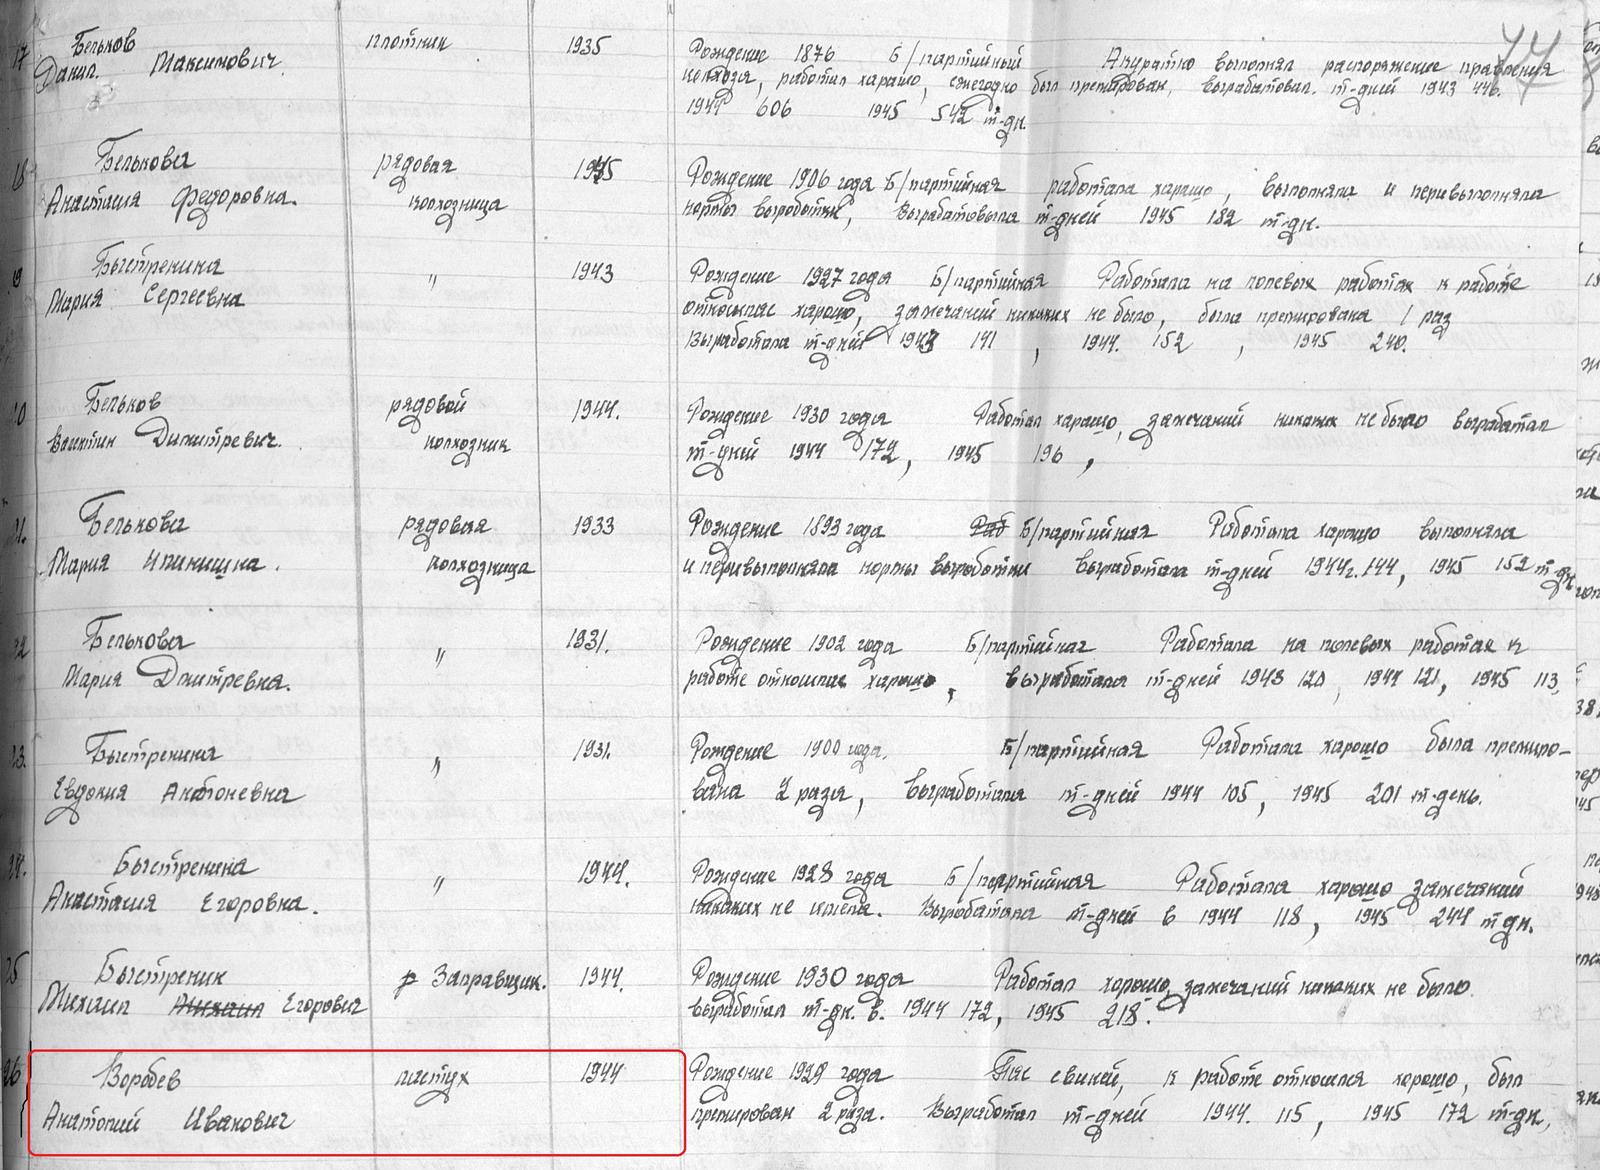 44
17 Бельков плотник 1935 Рождение 1876 Б/партийный Акуратно выполнял распоряжение правления
Данил. Максимович. колхоза, работал харашо, ежегодно был премирован, вырабатовал. т-дней 1943 446.
1944 606 1945 542 т-дн.
18 Белькова рядовая 1945 Рождение 1906 года Б/партийная работала харашо, выполняла и перивыполняла
Анастасия Федоровна. колхозница нормы выработки, Вырабатовыла т-дней 1945 182 т-дн.
19 Быстренина " 1943 Рождение 1927 года Б/партийная Работала на полевых работах к работе
Мария Сергеевна относилас харашо, замечаний никаких не было, была премирована 1 раз
Выработала т-дней 1943 141, 1944. 152, 1945 240.
20 Бельков рядовой 1944. Рождение 1930 года Работал харашо, замечаний никаких не было выработал
Дмитревич. колхозник т-дней 1944 172, 1945 196,
21. Белькова рядовая 1933 Рождение 1893 года Раб Б/партийная Работала харашо выполняла
Мария колхозница и перивыполняла нормы выработки выработала т-дней 1944г. 144, 1945 152 т-дн
22 Белькова " 1931. Рождение 1902 года Б/партийная Работала на полевых работах к
Мария Дмитревна. работе относилас харашо, выработала т-дней 1943 120, 1944 121, 1945 113,
23. Быстренина " 1931. Рождение 1900 года. Б/партийная Работала харашо была премиро-
Евдокия Антоневна вана 2 раза, Выработала т-дней 1944 105, 1945 201 т-день.
24. Быстренина " 1944. Рождение 1928 года Б/партийная Работала харашо замечаний
Анастасия Егоровна. никаких не имела. Выработала т-дней в 1944 118, 1945 244 тдн.
25 Быстреник р Заправщик. 1944. Рождение 1930 года Работал хорошо, замечаний никаких не было.
Михаил Михаил Егорович выработал т-дн. в. 1944 172, 1945 218.
26 Воробев пастух 1944 Рождение 1929 года Пас свиней, к работе относился хорошо, был
Анатолий Иванович премирован 2 раза. Выработал т-дней 1944. 115, 1945 172 т-дн,